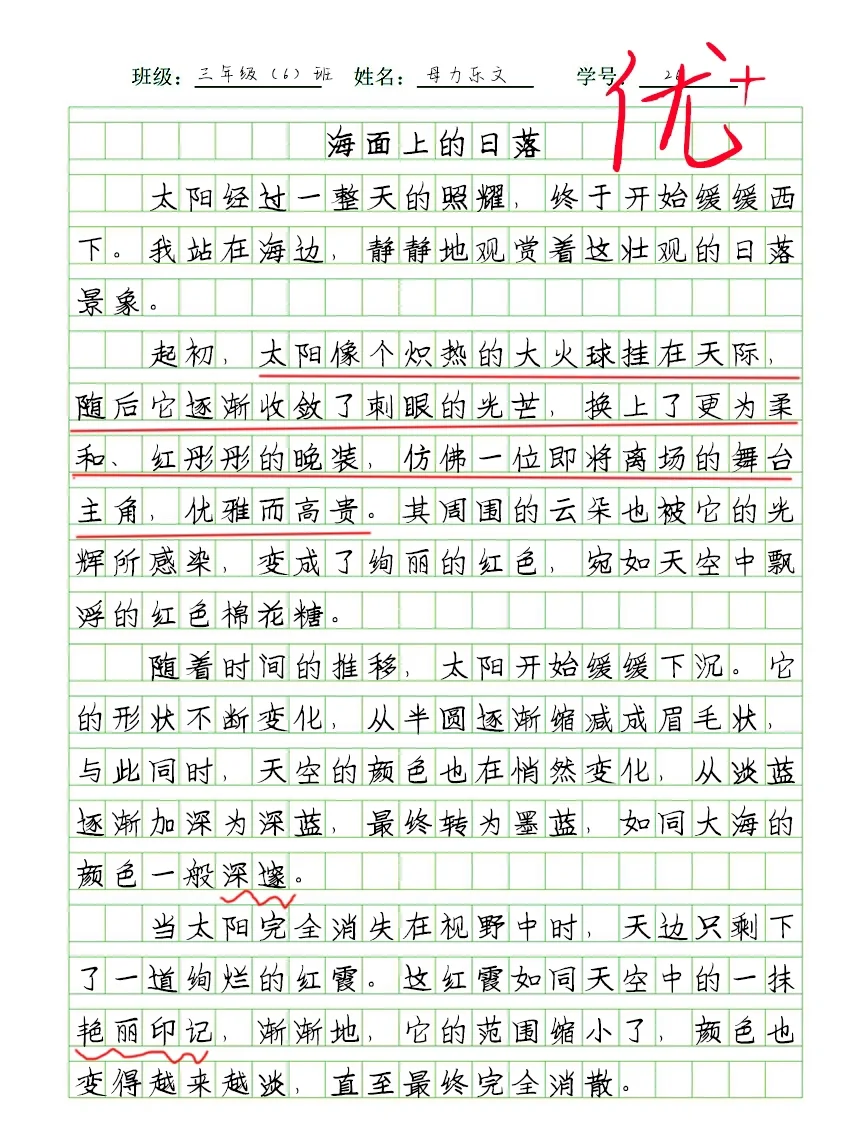 班级：三年级（6）班 姓名：母力乐文 学号：
优+
海面上的日落
太阳经过一整天的照耀，终于开始缓缓西
下。我站在海边，静静地观赏着这壮观的日落
景象。
起初，太阳像个炽热的大火球挂在天际，
随后它逐渐收敛了刺眼的光芒，换上了更为柔
和、红彤彤的晚装，仿佛一位即将离场的舞台
主角，优雅而高贵。其周围的云朵也被它的光
辉所感染，变成了绚丽的红色，宛如天空中飘
浮的红色棉花糖。
随着时间的推移，太阳开始缓缓下沉。它
的形状不断变化，从半圆逐渐缩减成眉毛状，
与此同时，天空的颜色也在悄然变化，从淡蓝
逐渐加深为深蓝，最终转为墨蓝，如同大海的
颜色一般深邃。
当太阳完全消失在视野中时，天边只剩下
了一道绚烂的红霞。这红霞如同天空中的一抹
艳丽印记，渐渐地，它的范围缩小了，颜色也
变得越来越淡，直至最终完全消散。